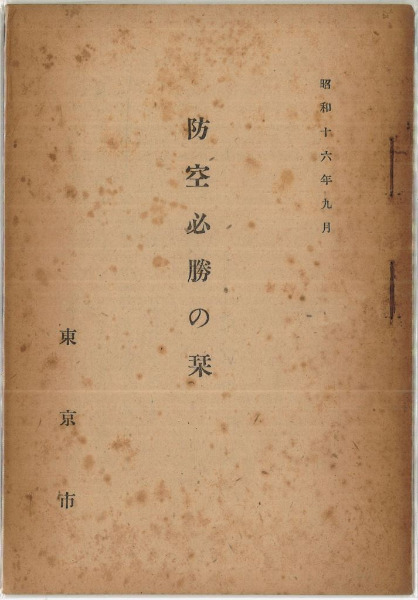 昭和十六年九月
防空必勝の栞
東京市